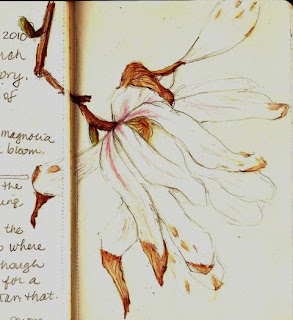 2010
rch
ory.
of
magnolia
bloom.
the
ung
the
o where
though
for a
than that.